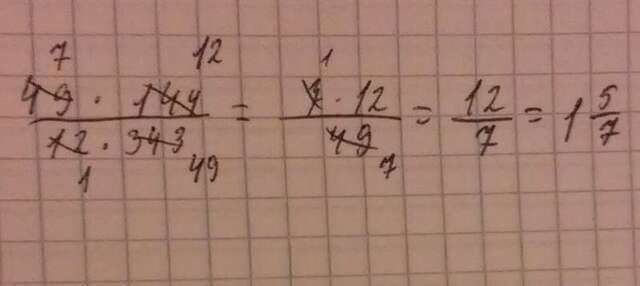 7 12 1
49 · 144 / 12 · 343 = 7 · 12 / 49 = 12/7 = 1 5/7
1 49 7